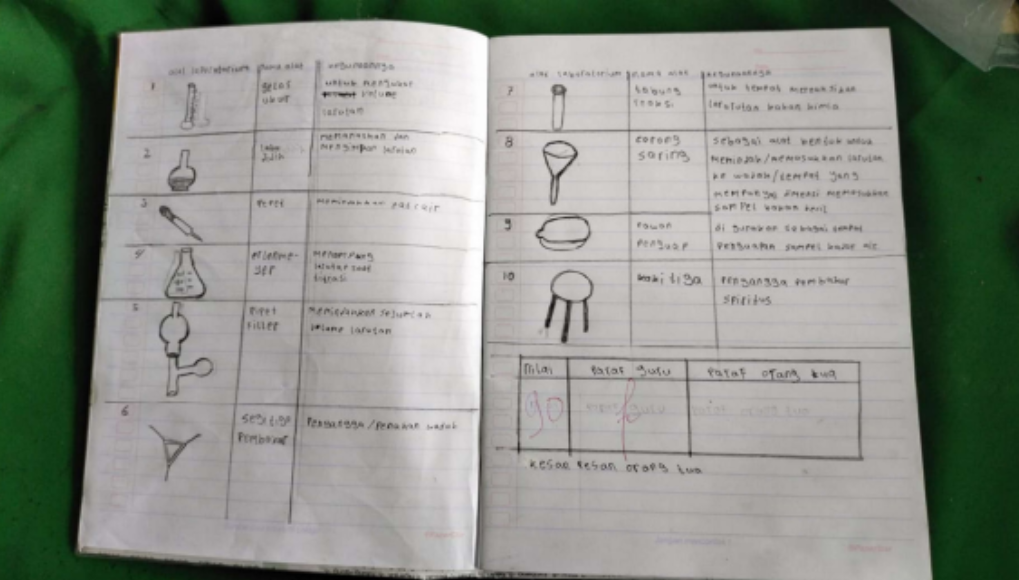 alat laboratorium nama alat kegunaannya
1 gelas ukur untuk mengukur
volume
larutan
2 labu didih memanaskan dan
menyimpan larutan
3 Pipet memindahkan
4 erlenme-
yer menampung
larutan saat
titrasi
5 Pipet
filler memindahkan sejumlah
volume larutan
6 segitiga
Pembakar Penyangga/Penahan wadah
alat laboratorium nama alat kegunaannya
7 tabung
reaksi untuk tempat mereaksikan
larutan bahan kimia
8 corong
saring sebagai alat bentuk untuk
memindah/memasukkan larutan
ke wadah/tempat yang
mempunyai dimensi memasukkan
sampel bahan kecil
9 cawan
penguap di gunakan sebagai tempat
Penguapan sampel
10 kaki tiga Penyangga pembakar
spiritus
Nilai Paraf guru Paraf orang tua
90
kesan pesan orang tua